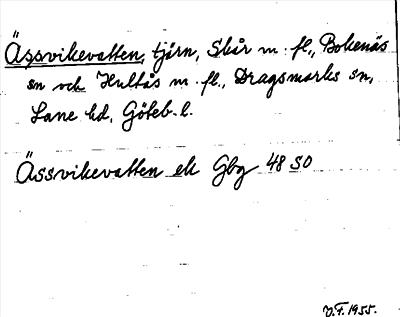 Ässvikevatten, tjärn, Skår m. fl., Bokenäs
sn och Hultås m. fl., Dragsmarks sn,
Lane hd, Göteb. l.
Ässvikevatten ek Gbg 48 SO
V.F. 1955.